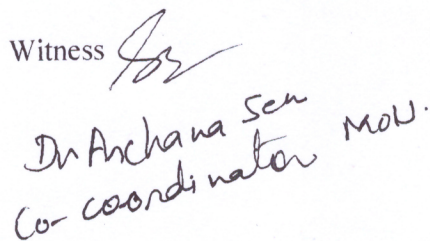 Witness
Dr Archana Sen
Co-coordinator MOU.